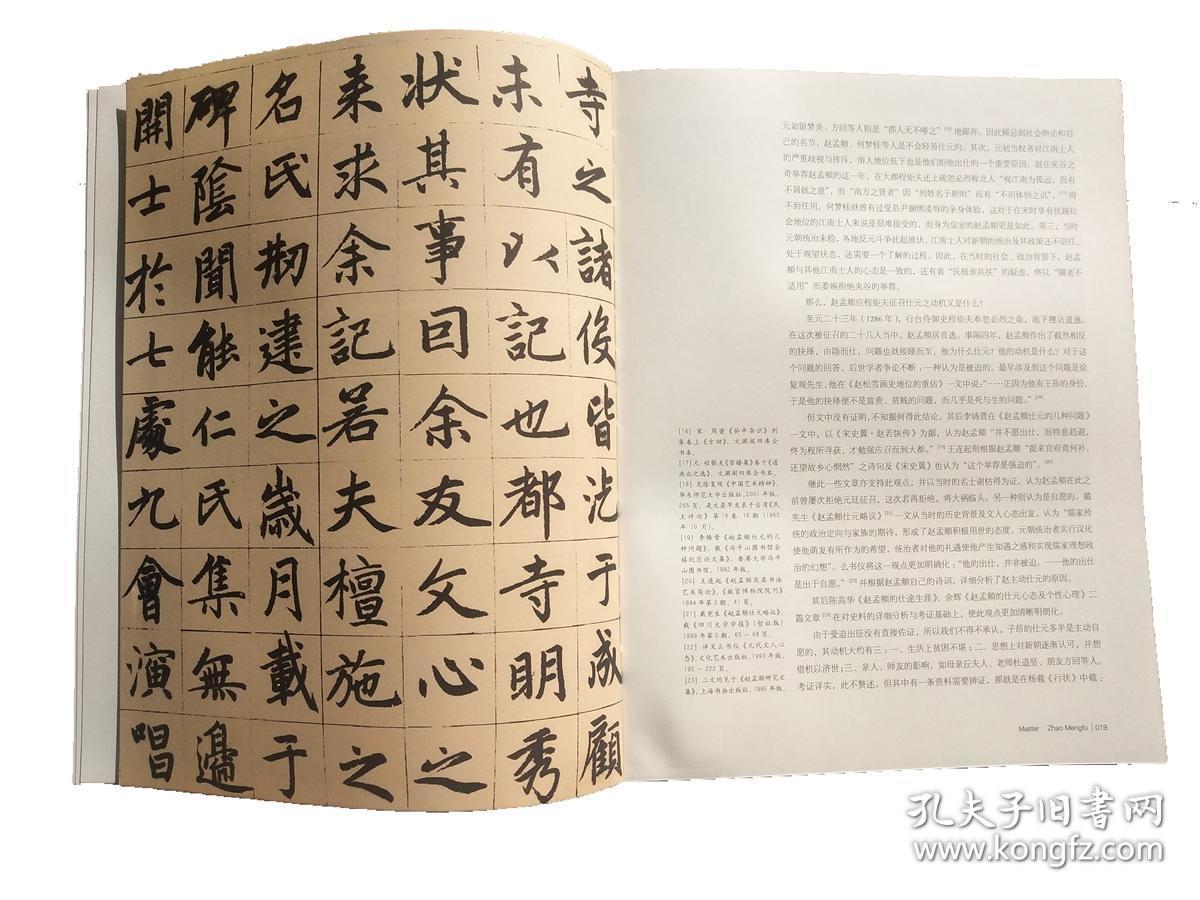 寺之諸役皆沾于成顧
未有以記也都寺明秀
状其事囙余友文心之
来求余記若夫檀施之
名氏刱建之歲月載于
碑陰聞能仁氏集無邉
開士於七處九會演唱
元如留梦炎、方回等人则是“郡人无不唾之”[16]地鄙弃。因此顾忌到社会舆论和自
己的名节，赵孟頫、何梦桂等人是不会轻易仕元的。其次，元初当权者对江南士人
的严重歧视与排斥，南人地位低下也是他们拒绝出仕的一个重要原因。就在夹谷之
奇举荐赵孟頫的这一年，在大都程钜夫还上疏忽必烈称北人“视江南为孤远，而有
不屑就之意”，而“南方之贤者”因“列姓名于新附”而有“不识体例之讥”，[17]得
不到任用。何梦桂就曾有过受县尹捆绑凌辱的亲身体验，这对于在宋时享有优越社
会地位的江南士人来说是很难接受的，而身为皇室的赵孟頫更是如此。第三，当时
元朝统治未稳，各地反元斗争此起彼伏，江南士人对新朝的统治及其政策还不信任，
处于观望状态，还需要一个了解的过程。因此，在当时的社会、政治背景下，赵孟
頫与其他江南士人的心态是一致的，还有着“民极谁其扶”的疑虑，终以“骥老不
适用”而委婉拒绝夹谷的举荐。
那么，赵孟頫应程钜夫征召仕元之动机又是什么？
至元二十三年（1286年），行台侍御史程钜夫奉忽必烈之命，南下搜访遗逸。
在这次被征召的二十几人当中，赵孟頫居首选。事隔四年，赵孟頫作出了截然相反
的抉择，由隐而仕，问题也就接踵而至，他为什么仕元？他的动机是什么？对于这
个问题的回答，后世学者争论不断：一种认为是被迫的。最早涉及到这个问题是徐
复观先生，他在《赵松雪画史地位的重估》一文中说：“……正因为他有王孙的身份，
于是他的抉择便不是富贵、贫贱的问题，而几乎是死与生的问题。”[18]
但文中没有证明，不知据何得此结论。其后李铸晋在《赵孟頫仕元的几种问题》
一文中，以《宋史翼·赵若恢传》为据，认为赵孟頫“并不愿出仕，而特意趋避，
终为程所寻获，才勉强应召而到大都。”[19]王连起则根据赵孟頫“捉来官府竟何补，
还望故乡心惘然”之诗句及《宋史翼》也认为“这个举荐是强迫的”。[20]
继此一些文章亦支持此观点，并以当时的名士谢枋得为证，认为赵孟頫在此之
前曾屡次拒绝元廷征召，这次若再拒绝，将大祸临头。另一种则认为是自愿的。戴
宪生《赵孟頫仕元略议》[21]一文从当时的历史背景及文人心态出发，认为“儒家传
统的政治定向与家族的期待，形成了赵孟頫积极用世的态度，元朝统治者实行汉化
使他萌发有所作为的希望，统治者对他的礼遇使他产生知遇之感和实现儒家理想政
治的幻想”。么书仪将这一观点更加明确化：“他的出仕，并非被迫。……他的出仕
是出于自愿。”[22]并根据赵孟頫自己的诗词，详细分析了赵主动仕元的原因。
其后陈高华《赵孟頫的仕途生涯》、余辉《赵孟頫的仕元心态及个性心理》二
篇文章[23]在对史料的详细分析与考证基础上，使此观点更加清晰明朗化。
由于受迫出征没有直接佐证，所以我们不得不承认，子昂的仕元多半是主动自
愿的，其动机大约有三：一、生活上贫困不堪；二、思想上对新朝逐渐认可，并想
借机以济世；三、亲人、师友的影响，如母亲丘夫人、老师杜道坚、朋友方回等人。
考证详实，此不赘述。但其中有一条资料需要辨证，那就在杨载《行状》中载：
[16] 宋·周密《癸辛杂识》别
集卷上《方回》，文渊阁四库全
书本。
[17] 元·程钜夫《雪楼集》卷十《通
南北之选》，文渊阁四库全书本。
[18] 见徐复观《中国艺术精神》，
华东师范大学出版社，2001年版，
265页，是文最早发表于台湾《民
主评论》第16卷16期（1965
年10月）。
[19] 李铸晋《赵孟頫仕元的几
种问题》，载《冯平山图书馆金
禧纪念论文集》，香港大学冯平
山图书馆，1982年版。
[20] 王连起《赵孟頫及其书法
艺术简论》，《故宫博物院院刊》
1994年第2期，41页。
[21] 戴宪生《赵孟頫仕元略议》，
载《四川大学学报》（哲社版）
1989年第2期，65－68页。
[22] 详见么书仪《元代文人心
态》，文化艺术出版社，1993年版，
195－222页。
[23] 二文均见于《赵孟頫研究文
集》，上海书画出版社，1995年版。
Master · Zhao Mengfu | 019
孔夫子旧书网
www.kongfz.com